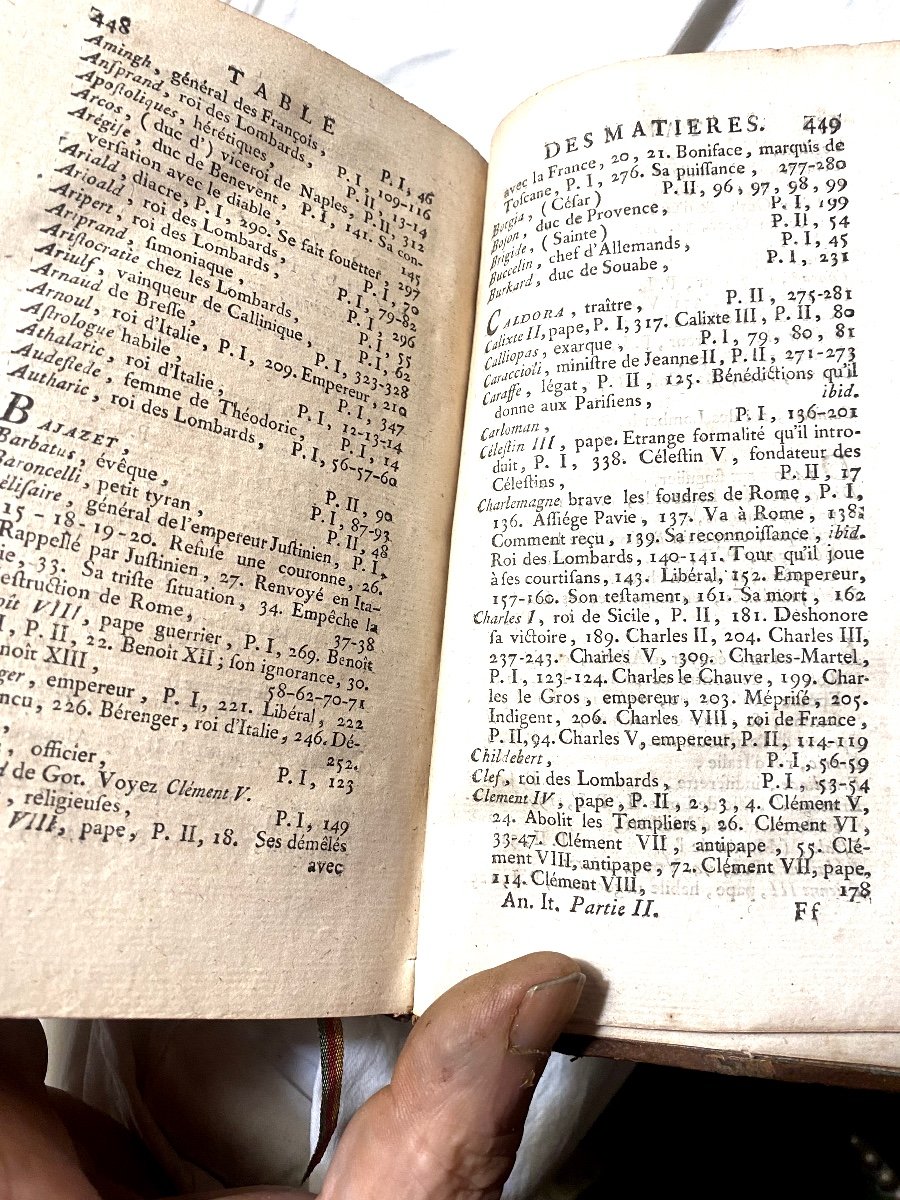 448
TABLE
Amingh, général des François, P. I, 46
Ansprand, roi des Lombards, P. I, 109-116
Apostoliques, hérétiques, P. II, 13-14
Arcos, (duc d') viceroi de Naples, P. II, 312
Arégise, duc de Benevent, P. I, 141. Sa con-
versation avec le diable, 145
Ariald, diacre, P. I, 290. Se fait fouetter, 297
Arioald, roi des Lombards, P. I, 50
Aripert, roi des Lombards, P. I, 79-82
Ariprand, simoniaque, P. I, 296
Aristocratie chez les Lombards, P. I, 55
Ariulf, vainqueur de Callinique, P. I, 62
Arnaud de Bresse, P. I, 323-328
Arnoul, roi d'Italie, P. I, 209. Empereur, 210
Astrologue habile, P. I, 347
Athalaric, roi d'Italie, P. I, 12-13-14
Audeflede, femme de Théodoric, P. I, 14
Autharic, roi des Lombards, P. I, 56-57-60
BAJAZET, P. II, 90
Barbatus, évêque, P. I, 87-93
Baroncelli, petit tyran, P. II, 48
élisaire, général de l'empereur Justinien, P. I,
15-18-19-20. Refuse une couronne, 26.
Rappellé par Justinien, 27. Renvoyé en Ita-
ie, 33. Sa triste situation, 34. Empêche la
estruction de Rome, 37-38
oit VIII, pape guerrier, P. I, 269. Benoît
I, P. II, 22. Benoît XII; son ignorance, 30.
noît XIII, 58-62-70-71
ger, empereur, P. I, 221. Libéral, 222
ncu, 226. Bérenger, roi d'Italie, 246. Dé-
, 252.
, officier, P. I, 123
de Got. Voyez Clément V.
, réligieuses, P. I, 149
VIII, pape, P. II, 18. Ses démêlés
avec
DES MATIERES. 449
avec la France, 20, 21. Boniface, marquis de
Toscane, P. I, 276. Sa puissance, 277-280
Borgia, (César) P. II, 96, 97, 98, 99
Boson, duc de Provence, P. I, 199
Brigide, (Sainte) P. II, 54
Buccelin, chef d'Allemands, P. I, 45
Burkard, duc de Souabe, P. I, 231
CALDORA, traître, P. II, 275-281
Calixte II, pape, P. I, 317. Calixte III, P. II, 80
Calliopas, exarque, P. I, 79, 80, 81
Caraccioli, ministre de Jeanne II, P. II, 271-273
Caraffe, légat, P. II, 125. Bénédictions qu'il
donne aux Parisiens, ibid.
Carloman, P. I, 136-201
Célestin III, pape. Etrange formalité qu'il intro-
duit, P. I, 338. Célestin V, fondateur des
Célestins, P. II, 17
Charlemagne brave les foudres de Rome, P. I,
136. Assiége Pavie, 137. Va à Rome, 138.
Comment reçu, 139. Sa reconnoissance, ibid.
Roi des Lombards, 140-141. Tour qu'il joue
à ses courtisans, 143. Libéral, 152. Empereur,
157-160. Son testament, 161. Sa mort, 162
Charles I, roi de Sicile, P. II, 181. Deshonore
sa victoire, 189. Charles II, 204. Charles III,
237-243. Charles V, 309. Charles-Martel,
P. I, 123-124. Charles le Chauve, 199. Char-
les le Gros, empereur, 203. Méprisé, 205.
Indigent, 206. Charles VIII, roi de France,
P. II, 94. Charles V, empereur, P. II, 114-119
Childebert, P. I, 56-59
Clef, roi des Lombards, P. I, 53-54
Clement IV, pape, P. II, 2, 3, 4. Clément V,
24. Abolit les Templiers, 26. Clément VI,
33-47. Clément VII, antipape, 55. Clé-
ment VIII, antipape, 72. Clément VII, pape,
114. Clément VIII, 178
An. It. Partie II. Ff